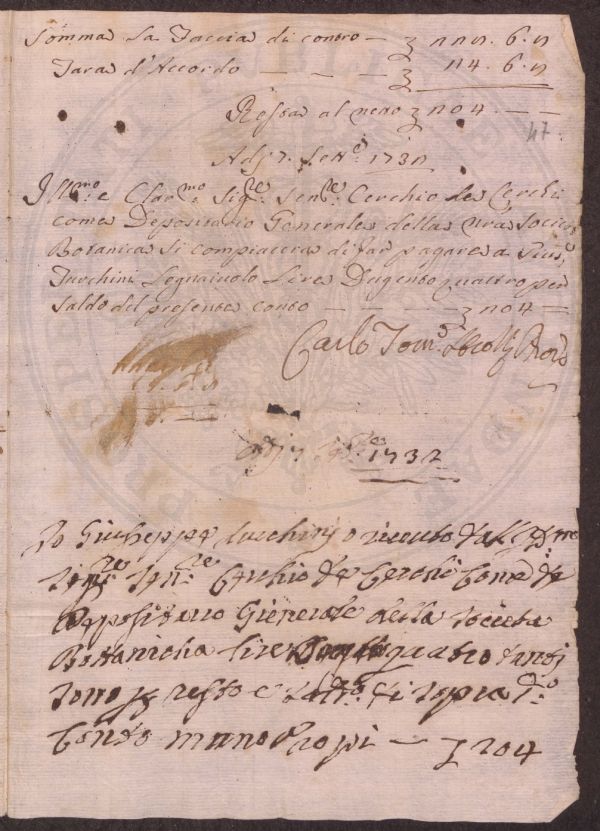 Somma La Faccia di contro — ʒ 222. 6. 2
Tara d'Accordo — — — ʒ 14. 6. 2
Resta al netto ʒ 204 — —
47
Adj 7. Sett.e 1732
Ill.mo e Clar.mo Sig.re Sen.re Cerchio de Cerchi
come Depositario Generale della nra Società
Botanica si compiacerà di far pagare a Gius.e
Tucchini Legnaiuolo Lire Dugento quattro per
saldo del presente conto — — — ʒ 204 —
Carlo Tom.o
adj 7 1732
Io Giuseppe Tucchinj o riceuto dal
Sig.re Sen.re Cerchio de Cerchi Come
Depositario Gienerale della Società
Bottanicha lire quatro tantj
sono p resto e di sopra d.o
Conto mano Propi — ʒ 204